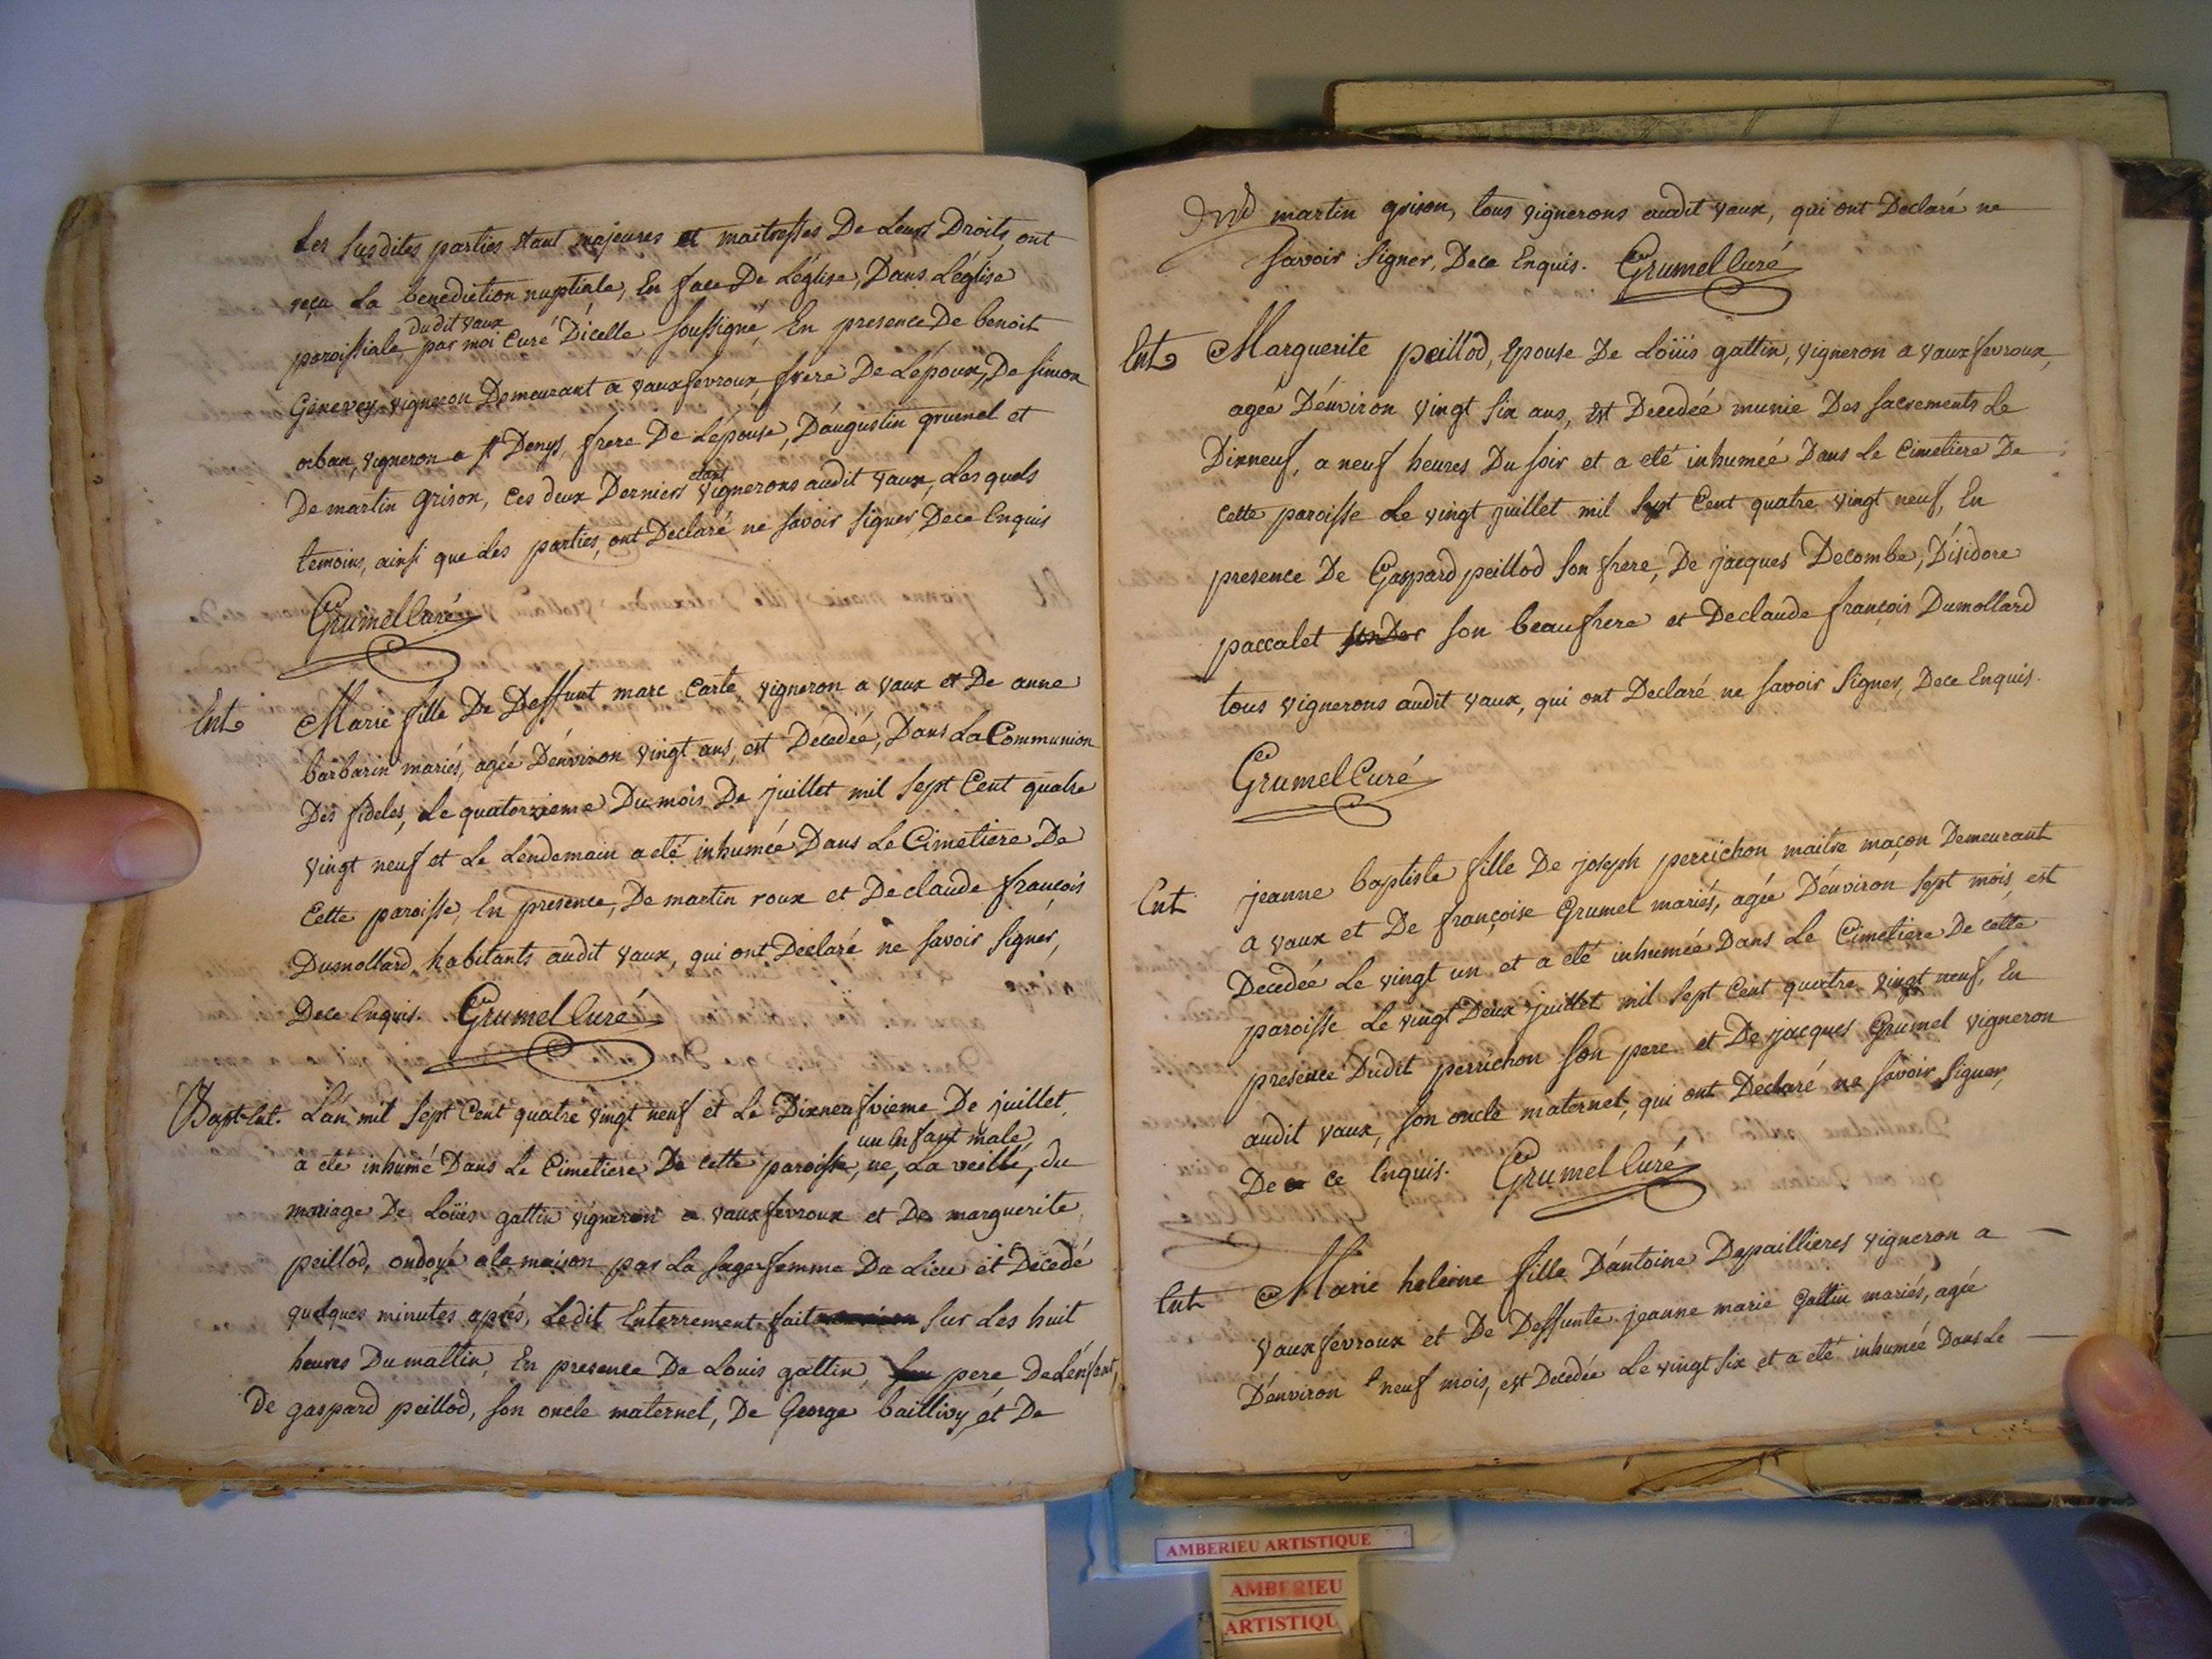 Les susdites parties étant majeures et maitresses De Leurs Droits, ont
reçu La benediction nuptiale, En face De Léglise, Dans Léglise
dudit vaux
paroissiale, par moi Curé Dicelle soussigné, En presence De benoit
Genevey vigneron Demeurant a vauxfevroux, frere De Lépoux, De simon
orban, vigneron a st Denys, frere De Lépouse, D'augustin grumel et
étant
De martin Grison, ces deux Derniers vignerons audit vaux, Les quels
temoins, ainsi que Les parties, ont Declaré ne savoir signer, Dece Enquis
Grumel Curé
Ent. Marie fille De Deffunt marc Carte, vigneron a vaux et De anne
barbarin mariés, agée D'environ vingt ans, est Décedée, Dans La Communion
Des fideles, Le quatorzieme Du mois De juillet mil sept Cent quatre
vingt neuf et Le Lendemain a eté inhumée Dans Le Cimetiere De
Cette paroisse, En presence, De martin roux et De claude françois
Dumollard habitants audit vaux, qui ont Declaré ne savoir signer,
Dece Enquis. Grumel Curé
Bapt-Ent. L'an mil sept Cent quatre vingt neuf et Le Dixneufvieme De juillet
un Enfant male,
à eté inhumé Dans Le Cimetiere De cette paroisse, né, La veille, du
mariage De Loüis gattin vigneron a vauxfevroux et De marguerite
peillod, ondoyé a la maison par La sage femme Du Lieu et Décedé
quelques minutes après, Ledit Enterrement fait sur Les huit
heures Du mattin, En presence De Louis gattin, son pere De L'enfant,
De gaspard peillod, son oncle maternel, De George baillivy et De
martin grison, tous vignerons audit vaux, qui ont Declaré ne
savoir signer, Dece Enquis. Grumel Curé
Ent. Marguerite peillod, Epouse De Loüis gattin, vigneron a vauxfevroux,
agée D'environ vingt six ans, est Decedée munie Des sacrements Le
Dixneuf, a neuf heures Du soir et a eté inhumée Dans Le Cimetiere De
Cette paroisse Le vingt juillet mil sept Cent quatre vingt neuf, En
presence De Gaspard peillod son frere, De jacques Decombe, D'isidore
paccalet son beaufrere et De claude françois Dumollard
tous vignerons audit vaux, qui ont Declaré ne savoir signer, Dece Enquis.
Grumel Curé
Ent jeanne baptiste fille De joseph perrichon maitre maçon Demeurant
a vaux et De françoise Grumel mariés, agée D'environ sept mois, est
Decedée Le vingt un et a eté inhumée Dans Le Cimetiere De cette
paroisse Le vingt Deux juillet mil sept Cent quatre vingt neuf, En
presence Dudit perrichon son pere et De jacques Grumel vigneron
audit vaux, son oncle maternel, qui ont Declaré ne savoir signer,
De ce Enquis. Grumel Curé
Ent Marie heleine fille D'antoine Depaillieres vigneron a
vauxfevroux et De Deffunte jeanne marie Gattin mariés, agée
D'environ neuf mois, est Decedée Le vingt six et a eté inhumée Dans Le
AMBERIEU ARTISTIQUE
AMBERIEU
ARTISTIQU